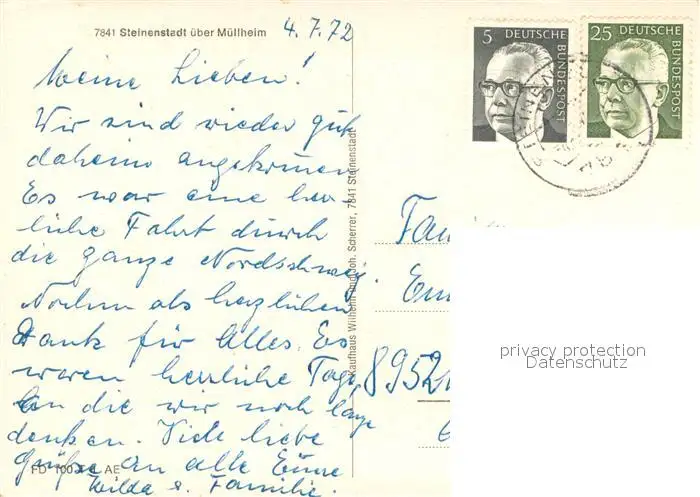 7841 Steinenstadt über Müllheim
4.7.72
Meine Lieben!
Wir sind wieder gut
daheim angekommen
Es war eine herr
liche Fahrt durch
die ganze Nordschweiz.
Nochm als herzlichen
Dank für Alles. Es
waren herrliche Tage
an die wir noch lange
denken. Viele liebe
Grüße an alle Eure
Hilda u. Familie.
FD 100 AE
Kaufhaus Wilhelm und Joh. Scherrer, 7841 Steinenstadt
5 DEUTSCHE BUNDESPOST
25 DEUTSCHE BUNDESPOST
Fam
8952
privacy protection
Datenschutz